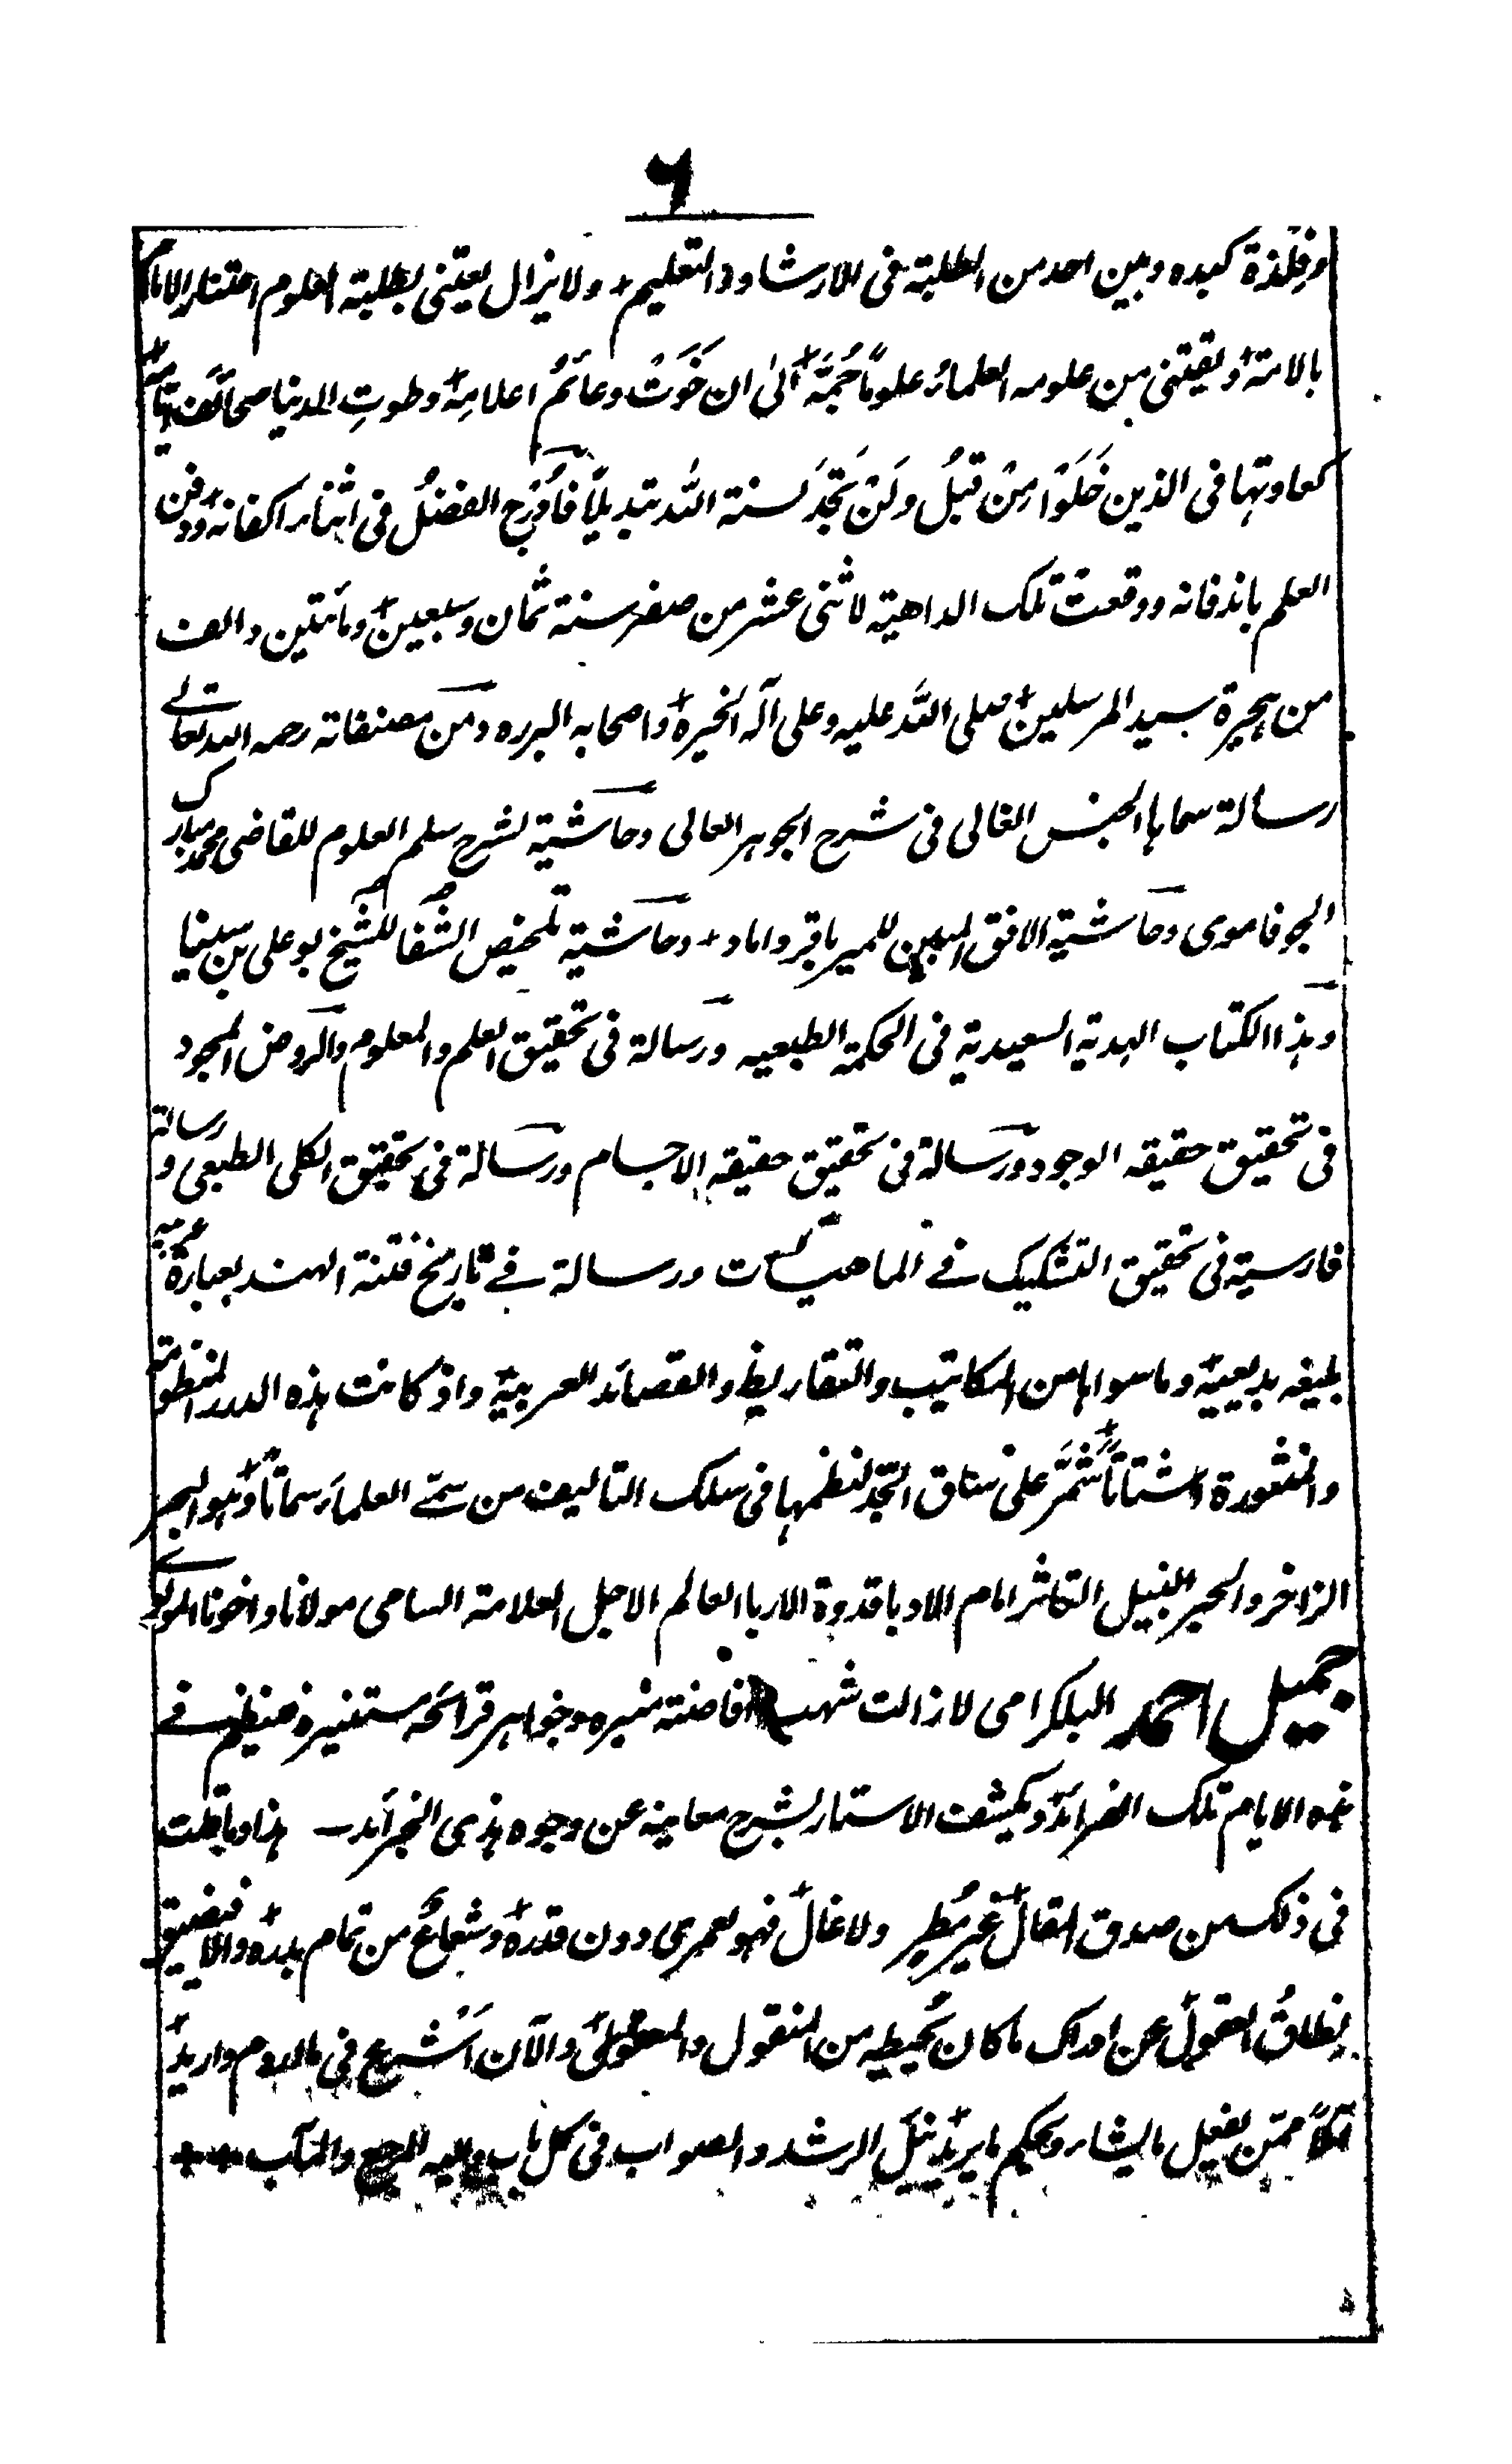 ٦
وفِلْذة كبده وبين احد من الطلبة فى الارشاد والتعليم + ولا يزال يعتنى بطلبة العلوم اعتناء الامام
بالامة و يقتنى من علومه العلماء علوماً جُمَّة الىٰ ان خَوَتْ دعائمُ اعلامِهٖ وطوتِ الدنيا صحائفَ ايامه
كعادتها فى الذين خَلَوْا مِنْ قبْلُ ولَنْ تجِدَ لسنة اللّٰه تبديلاً فاُدْرِج الفضلُ فى اثناء اكفانه ودفن
العلم باندفانه ووقعت تلك الداهية لاثنى عشر من صفر سنة ثمان وسبعين ومائتين والف
من هجرة سيد المرسلين صلى اللّٰه عليه وعلى آله الخيرة واصحابه البرره ومن مصنفاته رحمه الله تعالے
رسالة سماها الجنس الغالى فى شرح الجوهر العالى وحاشية لشرح سلم العلوم للقاضى محمد مبارك
الجوفاموى وحاشية الافق المبين للمير باقر داماد + وحاشية تلخيص الشفا للشيخ بو على بن سينا
وهذا الكتاب الهدية السعيدية فى الحكمة الطبعيه ورسالة فى تحقيق العلم والمعلوم والروض المجود
فى تحقيق حقيقه الوجود ورسالة فى تحقيق حقيقه الاجسام ورسالة فى تحقيق الكلى الطبعى و رسالة
فارسية فى تحقيق التشكيك فے الماهيات ورسالة فے تاريخ فتنة الهند بعبارة عربية
بليغه بديعية وما سواها من المكاتيب والتقاريظ والقصائد العربية واذ كانت هذه الدرر المنظومة
والمنثورة اشتاتاً شَمَّرَ على ساق الجّد لنظمها فى سلك التاليف من سمّے العلماء سماتاً وهو البحر
الزاخر والحبر النبيل التكاثر امام الادبا قدوة الاربا العالم الاجل العلامة السامى مولانا واخونا المولوے
جميل احمد البلكرامى لا زالت شهب افاضته منيره وجواهر قرائحه مستنيرة فنظم فے
هذه الايام تلك الفرائد ويكشف الاستار بشرح معانيه عن وجوه هذى الخرائد ــ هذا وما قلت
فى ذلك من صدق المقال غير مُطرٍ ولا غالٍ فهو لعمرى دون قدره وشعاعٌ من تمام بدره والا فيضيق
نِطاقُ العقول عن ادراك ما كان يُحيطه من المنقول والمعقول والآن اَشْرع فى ما اروم واريد
آملاً ممّن يفعل ما يشاء ويحكم ما يريد نيل الرشد والصواب فى كل باب واليه المرجع والمآب ++